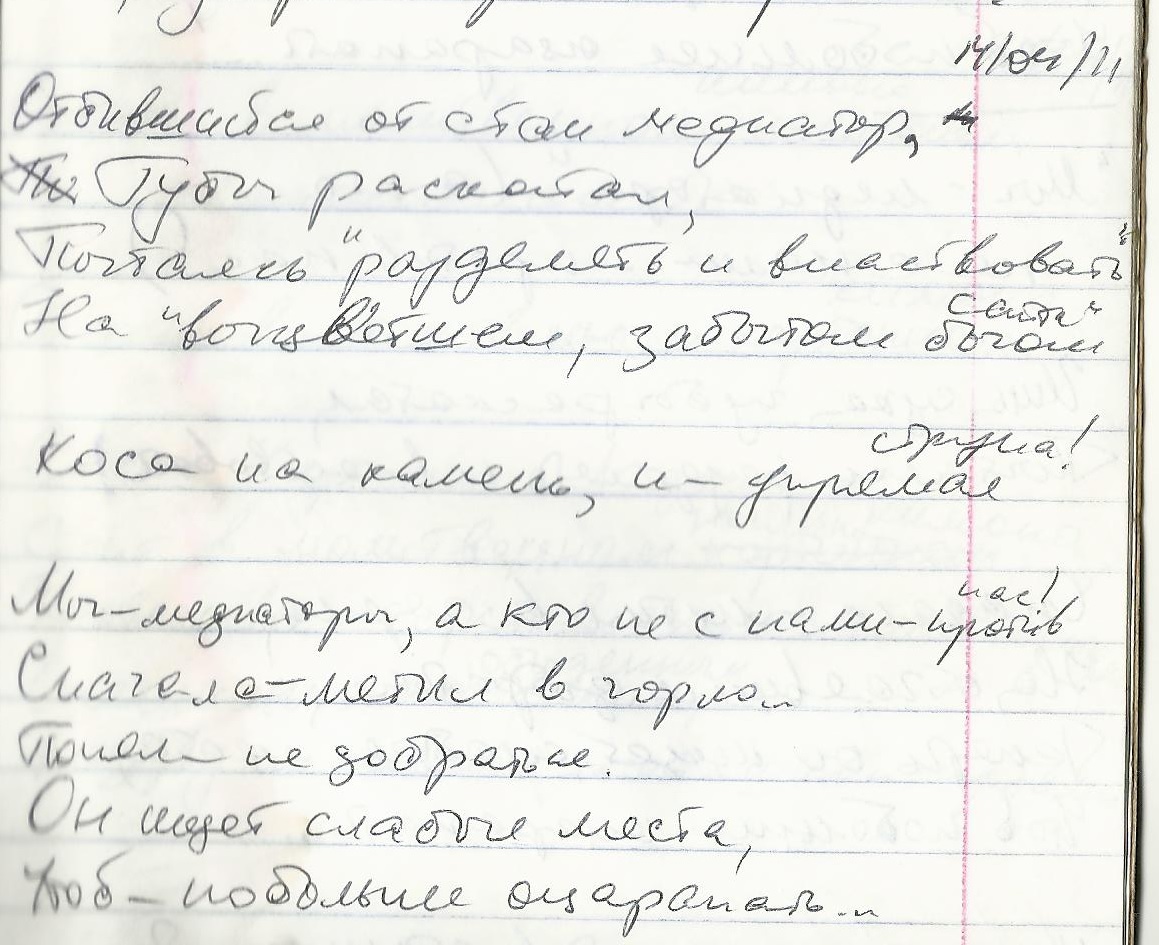 14/04/11
Отбившийся от стаи медиатор,
Губы раскатал,
Пытаясь "разделять и властвовать"
На "выцветшем, забытом богом сайте"
Коса на камень, и – упрямая струна!
Мы – медиаторы, а кто не с нами – против нас!
Сначала – метил в горло...
Понял – не добраться.
Он ищет слабые места,
Чтоб – побольше оцарапать...